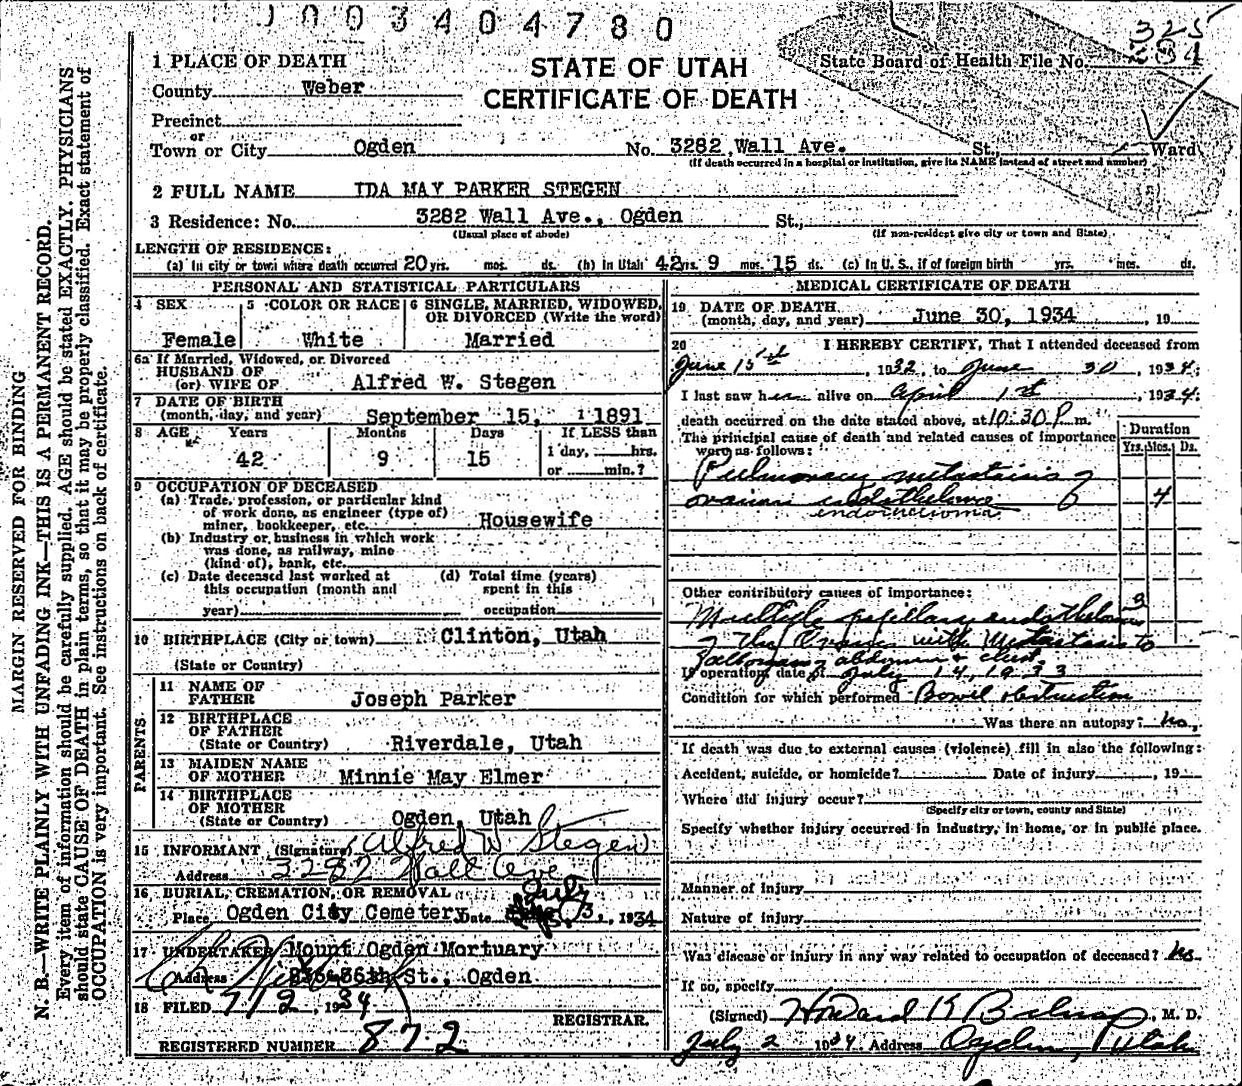 1003404780
325
State Board of Health File No. 34
STATE OF UTAH
CERTIFICATE OF DEATH
1 PLACE OF DEATH
County Weber
Precinct
or
Town or City Ogden No. 3282 Wall Ave. St., Ward
(If death occurred in a hospital or institution, give its NAME instead of street and number)
2 FULL NAME IDA MAY PARKER STEGEN
3 Residence: No. 3282 Wall Ave., Ogden St.,
(Usual place of abode) (If non-resident give city or town and State)
LENGTH OF RESIDENCE:
(a) In city or town where death occurred 20 yrs. mos. ds. (b) In Utah 42 yrs. 9 mos. 15 ds. (c) In U. S., if of foreign birth yrs. mos. ds.
PERSONAL AND STATISTICAL PARTICULARS
4 SEX 5 COLOR OR RACE 6 SINGLE, MARRIED, WIDOWED, OR DIVORCED (Write the word)
Female White Married
6a If Married, Widowed, or Divorced
HUSBAND OF
(or) WIFE OF Alfred W. Stegen
7 DATE OF BIRTH
(month, day, and year) September 15, 1891
8 AGE Years Months Days If LESS than
42 9 15 1 day, hrs.
or min.?
9 OCCUPATION OF DECEASED
(a) Trade, profession, or particular kind
of work done, as engineer (type of)
miner, bookkeeper, etc. Housewife
(b) Industry or business in which work
was done, as railway, mine
(kind of), bank, etc.
(c) Date deceased last worked at (d) Total time (years)
this occupation (month and spent in this
year) occupation
10 BIRTHPLACE (City or town) Clinton, Utah
(State or Country)
PARENTS
11 NAME OF
FATHER Joseph Parker
12 BIRTHPLACE
OF FATHER
(State or Country) Riverdale, Utah
13 MAIDEN NAME
OF MOTHER Minnie May Elmer
14 BIRTHPLACE
OF MOTHER
(State or Country) Ogden, Utah
15 INFORMANT (Signature) Alfred W Stegen
Address 3282 Wall Ave
16 BURIAL, CREMATION, OR REMOVAL
Place Ogden City Cemetery Date July 3, 1934
17 UNDERTAKER Mount Ogden Mortuary
Address 36th St., Ogden
18 FILED 7/2, 1934
REGISTRAR.
REGISTERED NUMBER 872
MEDICAL CERTIFICATE OF DEATH
19 DATE OF DEATH
(month, day, and year) June 30, 1934, 19
20 I HEREBY CERTIFY, That I attended deceased from
June 15th, 1932, to June 30, 1934;
I last saw her alive on April 1st, 1934;
death occurred on the date stated above, at 10:30 P m.
The principal cause of death and related causes of importance
were as follows:
Duration
Yrs. Mos. Ds.
Pulmonary metastasis of
ovarian endothelioma 4
Other contributory causes of importance:
Multiple papillary endothelioma 3
of the Ovaries with Metastasis to
abdomen & chest.
If operation, date of July 14, 1933
Condition for which performed Bowel obstruction
Was there an autopsy? no
If death was due to external causes (violence) fill in also the following:
Accident, suicide, or homicide? Date of injury, 19
Where did injury occur?
(Specify city or town, county and State)
Specify whether injury occurred in industry, in home, or in public place.
Manner of injury
Nature of injury
Was disease or injury in any way related to occupation of deceased? no
If so, specify
(Signed) Howard K Belnap, M. D.
July 2 1934 Address Ogden, Utah
MARGIN RESERVED FOR BINDING
N. B.—WRITE PLAINLY WITH UNFADING INK—THIS IS A PERMANENT RECORD.
Every item of information should be carefully supplied. AGE should be stated EXACTLY. PHYSICIANS
should state CAUSE OF DEATH in plain terms, so that it may be properly classified. Exact statement of
OCCUPATION is very important. See instructions on back of certificate.